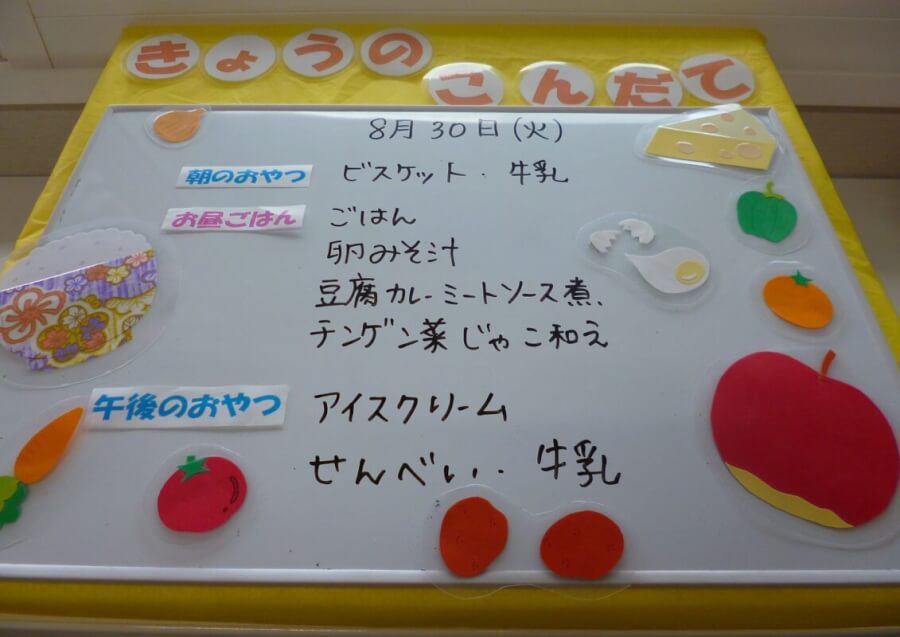 きょうのこんだて
8月30日(火)
朝のおやつ ビスケット・牛乳
お昼ごはん ごはん
卵みそ汁
豆腐カレーミートソース煮、
チンゲン菜じゃこ和え
午後のおやつ アイスクリーム
せんべい・牛乳